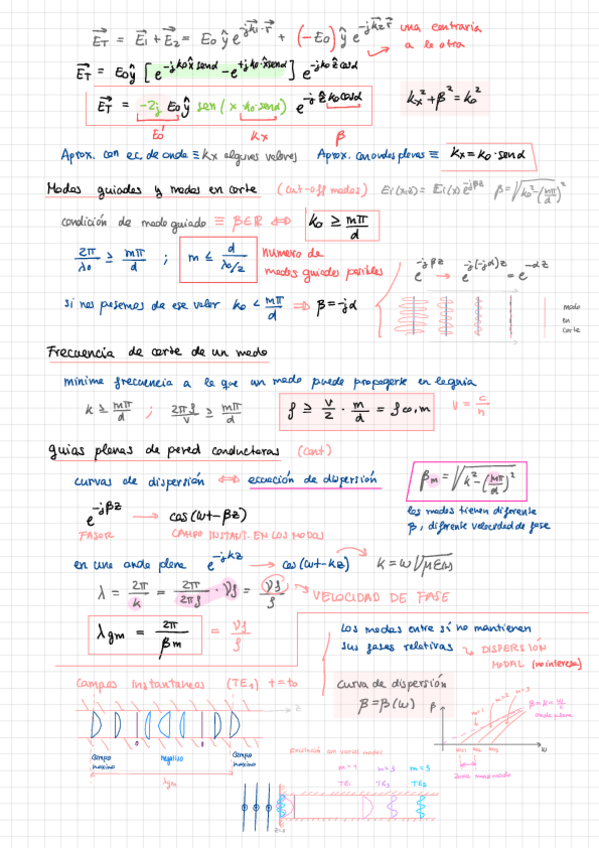 E⃗T = E⃗1 + E⃗2 = E0 ŷ e^(-jk⃗1·r⃗) + (-E0) ŷ e^(-jk⃗2·r⃗) una contraria
a la otra
E⃗T = E0ŷ [e^(-jk0x̂senα) - e^(+jk0x̂senα)] e^(-jk0ẑcosα)
E⃗T = -2j E0ŷ sen(x k0·senα) e^(-jẑk0cosα) kx² + β² = k0²
E0' kx β
Aprox. con ec. de onda ≡ kx algunos valores Aprox. con ondas planas ≡ kx = k0·senα
Modos guiados y modos en corte (cut-off modes) Ei(x,z) = Ei(x) e^(-jβz) β = √(k0² - (mπ/d)²)
condición de modo guiado ≡ β∈ℝ ⇔ k0 ≥ mπ/d
2π/λ0 ≥ mπ/d ; m ≤ d/(λ0/2) numero de
modos guiados posibles
e^(-jβz) → e^(-j(-jα)z) = e^(-αz)
si nos pasamos de ese valor k0 < mπ/d ⇒ β = -jα
modo
en
corte
Frecuencia de corte de un modo
mínima frecuencia a la que un modo puede propagarse en la guía
k ≥ mπ/d ; 2πf/v ≥ mπ/d f ≥ v/2 · m/d = fco,m v = c/n
guías planas de pared conductoras (cont)
curvas de dispersión ⇔ ecuación de dispersión βm = √(k² - (mπ/d)²)
e^(-jβz) → cos(ωt-βz)
los modos tienen diferente
β, diferente velocidad de fase
FASOR CAMPO INSTANT. EN LOS MODOS
en una onda plana e^(-jkz) → cos(ωt-kz) k = ω√με
λ = 2π/k = 2π/2πf · vf = vf/f VELOCIDAD DE FASE
λgm = 2π/βm = vf/f
Los modos entre sí no mantienen
sus fases relativas ↳ DISPERSIÓN
MODAL (no interesa)
Campos instantaneos (TE1) t=t0
z
Curva de dispersión
β = β(ω)
β
m=1
m=2
m=3
β=k=ω/c
onda plana
ω
zona monomodo
campo
maximo
negativo
campo
maximo
λgm
Excitación con varios modos
m=1
TE1
TE2
TE3
z=0